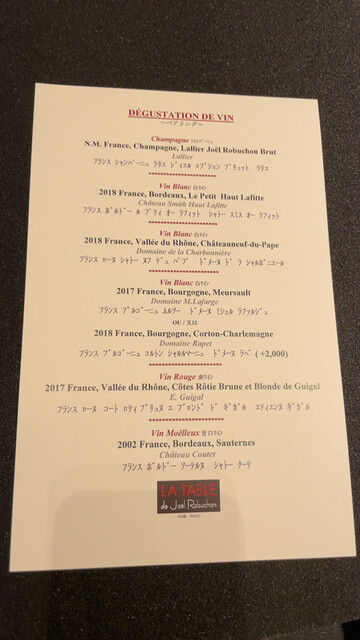 DÉGUSTATION DE VIN
～ペアリング～
Champagne シャンパーニュ
N.M. France, Champagne, Lallier Joël Robuchon Brut
Lallier
フランス シャンパーニュ ラリエ ジョエル ロブション ブリュット ラリエ
***********************
Vin Blanc 白ワイン
2018 France, Bordeaux, Le Petit Haut Lafitte
Château Smith Haut Lafitte
フランス ボルドー ル プティ オー ラフィット シャトー スミス オー ラフィット
***********************
Vin Blanc 白ワイン
2018 France, Vallée du Rhône, Châteauneuf-du-Pape
Domaine de la Charbonnière
フランス ローヌ シャトー ヌフ デュ パプ ドメーヌ ド ラ シャルボニエール
***********************
Vin Blanc 白ワイン
2017 France, Bourgogne, Meursault
Domaine M.Lafarge
フランス ブルゴーニュ ムルソー ドメーヌ ミシェル ラファルジュ
OU / 又は
2018 France, Bourgogne, Corton-Charlemagne
Domaine Rapet
フランス ブルゴーニュ コルトン シャルルマーニュ ドメーヌ ラペ ( +2,000)
***********************
Vin Rouge 赤ワイン
2017 France, Vallée du Rhône, Côtes Rôtie Brune et Blonde de Guigal
E. Guigal
フランス ローヌ コート ロティ ブリュヌ エ ブロンド ド ギガル エティエンヌ ギガル
***********************
Vin Moëlleux 甘口ワイン
2002 France, Bordeaux, Sauternes
Château Coutet
フランス ボルドー ソーテルヌ シャトー クーテ
LA TABLE
de Joël Robuchon